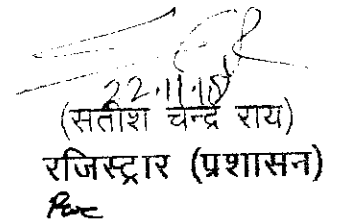 22.11.18
(सतीश चन्द्र राय)
रजिस्ट्रार (प्रशासन)